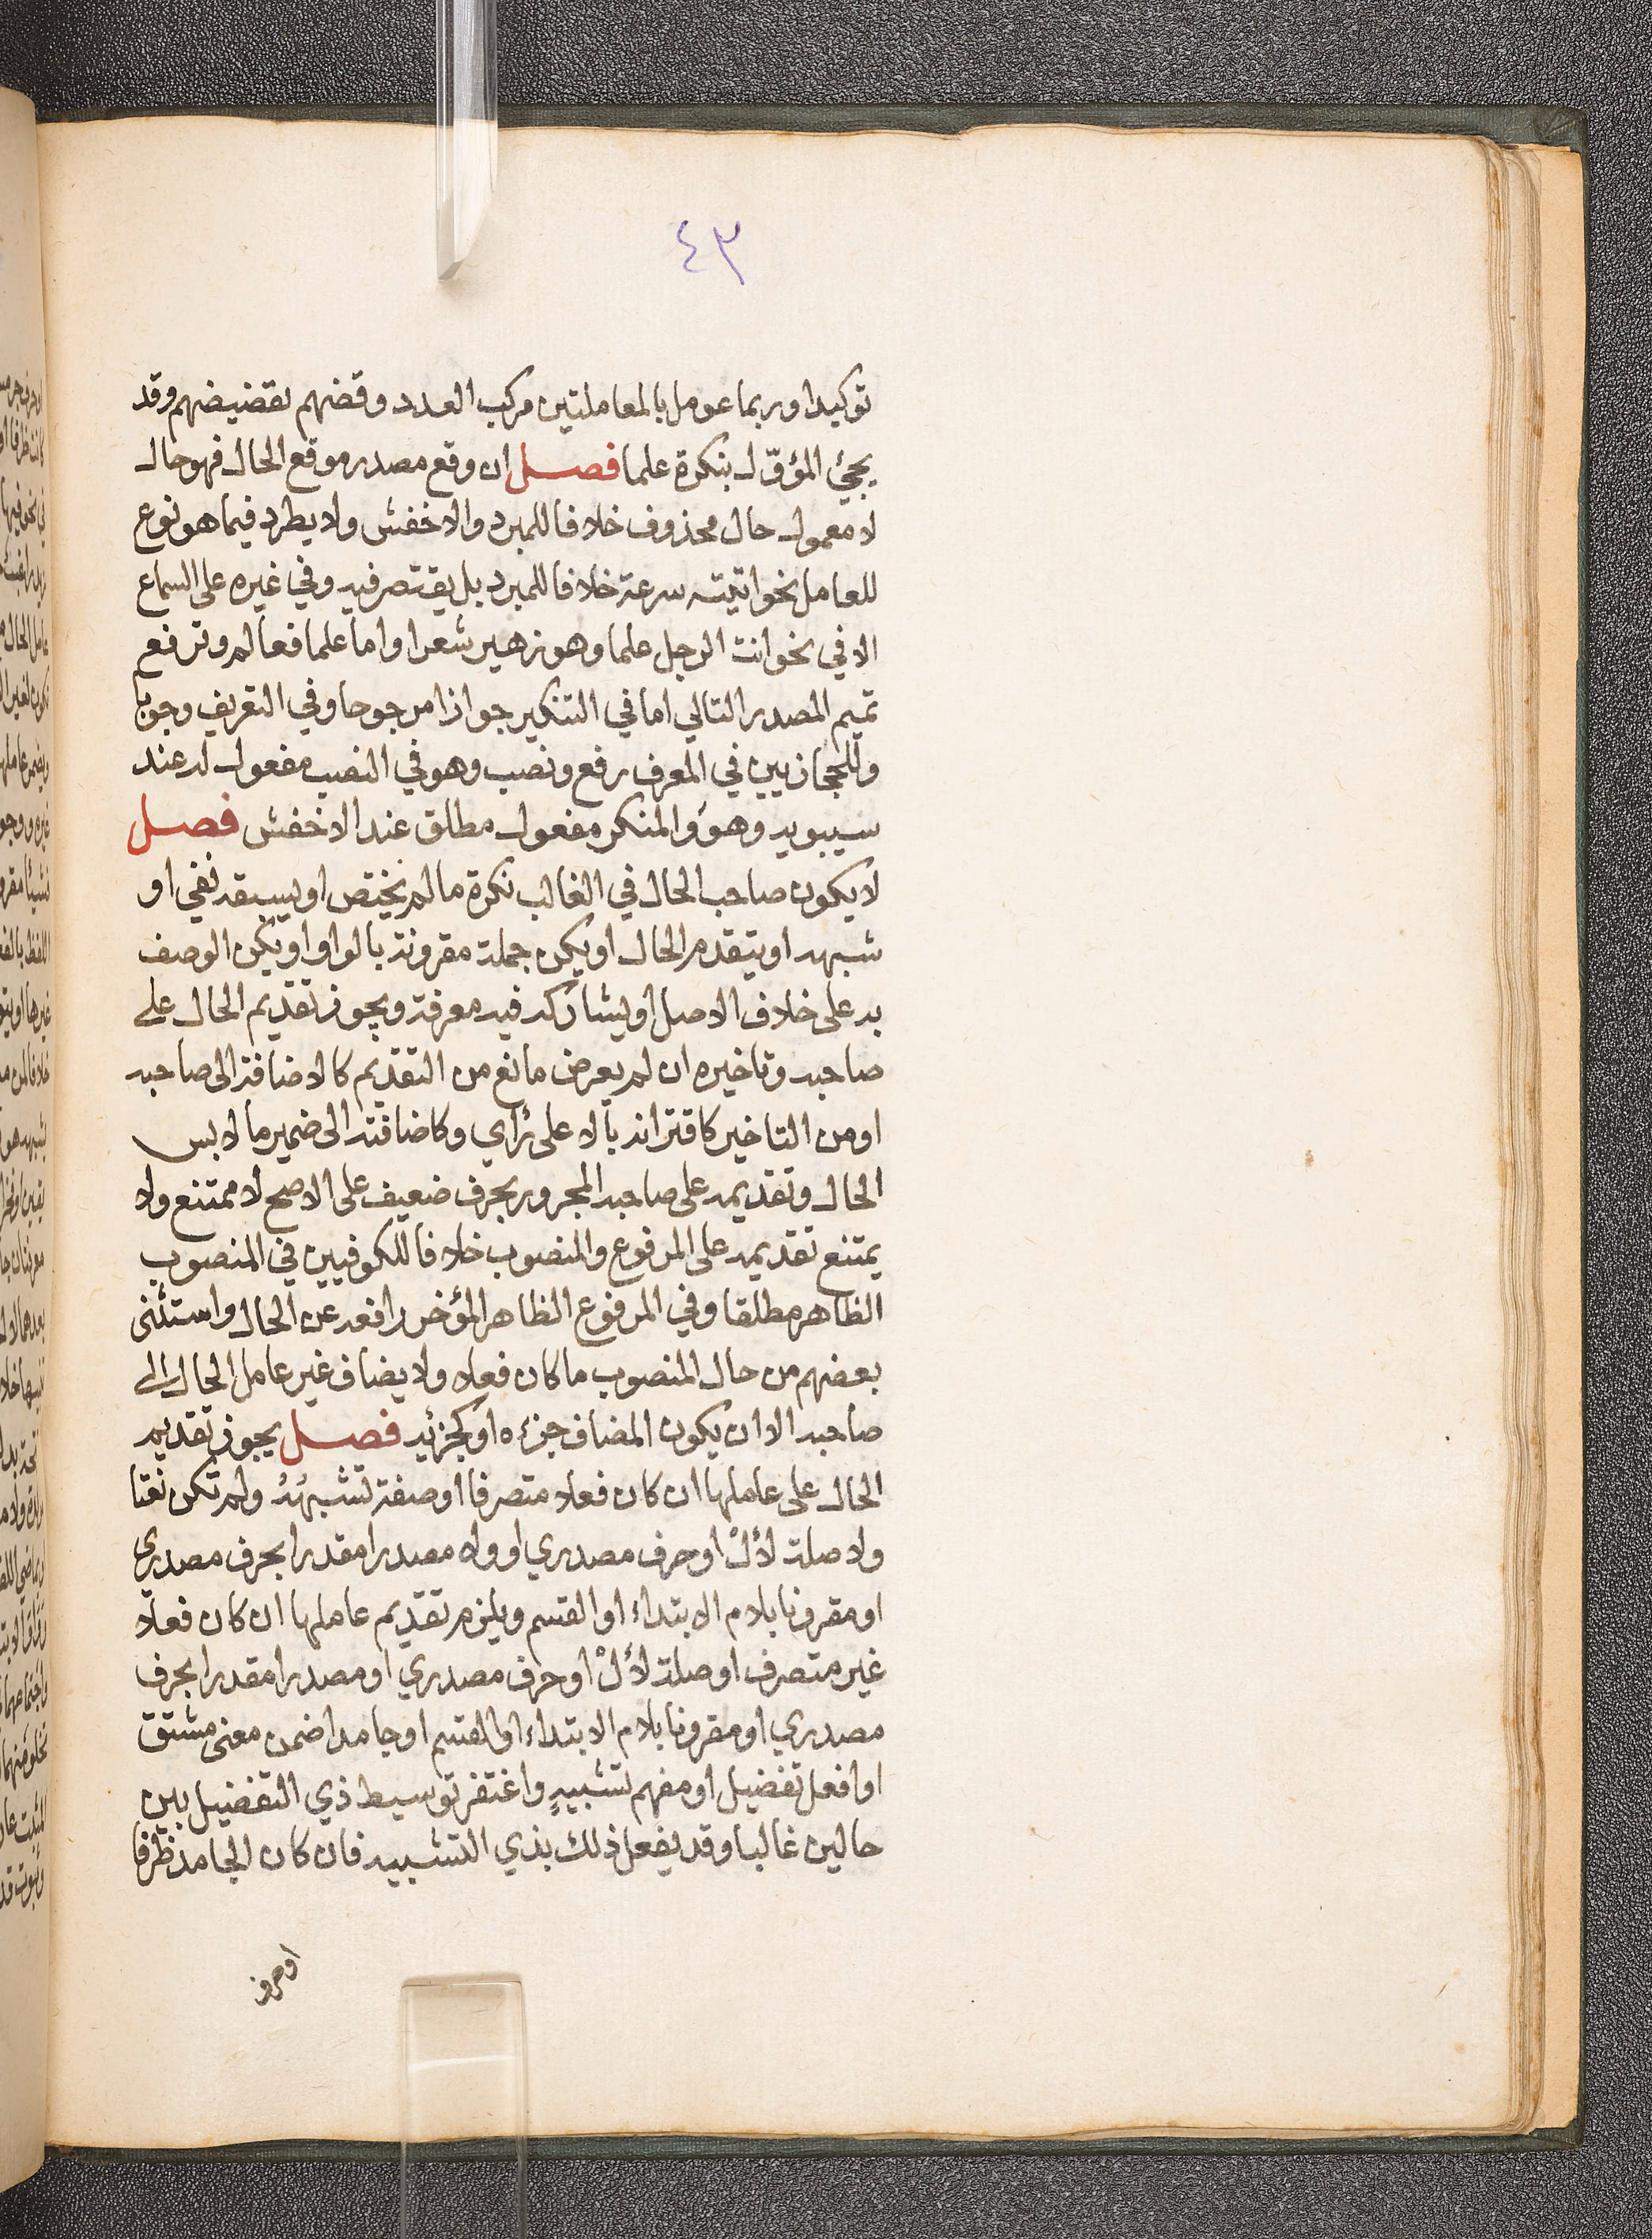 ٤٣
توكيدا وربما عومل بالمعاملتين مركب العدد وقضهم بقضيضهم وقد
يجئ المؤوّل بنكرة علما فصل ان وقع مصدر موقع الحال فهو حال
لا معمول حال محذوف خلافا للمبرد والاخفش ولا يطرد فيما هو نوع
للعامل نحو اتيته سرعة خلافا للمبرد بل يقتصر فيه وفي غيره على السماع
الا في نحو انت الرجل علما وهو زهير شعرا واما علما فعالم وترفع
تميم المصدر التالي اما في التنكير جوازا مرجوحا وفي التعريف وجوبا
وللحجازيين في المعرف رفع ونصب وهو في النصب مفعول له عند
سيبويه وهو والمنكر مفعول مطلق عند الاخفش فصل
لا يكون صاحب الحال في الغالب نكرة ما لم يختص او يسبقه نفي او
شبهه او يتقدم الحال او يكن جملة مقرونة بالواو او يكن الوصف
به على خلاف الاصل او يشاركه فيه معرفة ويجوز تقديم الحال على
صاحبه وتاخيره ان لم يعرض مانع من التقديم كالاضافة الى صاحبه
او من التاخير كاقترانه بالا على رأي وكاضافته الى ضمير ما لابس
الحال وتقديمه على صاحبه المجرور بحرف ضعيف على الاصح لا ممتنع ولا
يمتنع تقديمه على المرفوع والمنصوب خلافا للكوفيين في المنصوب
الظاهر مطلقا وفي المرفوع الظاهر المؤخر رافعه عن الحال واستثنى
بعضهم من حال المنصوب ما كان فعلا ولا يضاف غير عامل الحال الى
صاحبه الا ان يكون المضاف جزءه او كجزئه فصل يجوز تقديم
الحال على عاملها ان كان فعلا متصرفا او صفة تشبهه ولم تكن نعتا
ولا صلة لأل او حرف مصدري او ولا مصدرا مقدرا بحرف مصدري
او مقرونا بلام الابتداء او القسم ويلزم تقديم عاملها ان كان فعلا
غير متصرف او صلة لأل او حرف مصدري او مصدرا مقدرا بحرف
مصدري او مقرونا بلام الابتداء او القسم او جامدا ضمن معنى مشتق
او افعل تفضيل او مفهم تشبيه واغتفر توسيط ذي التفضيل بين
حالين غالبا وقد يفعل ذلك بذي التشبيه فان كان الجامد ظرفا